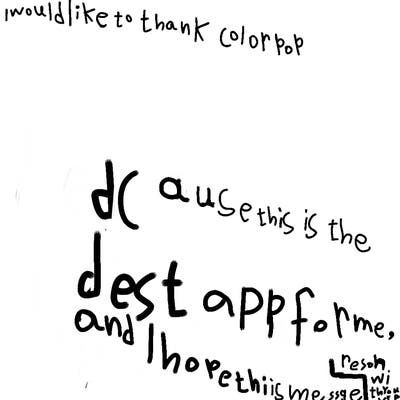 I would like to thank colorpop
dcause this is the
dest app for me,
and I hope thiis messge
reson
wi